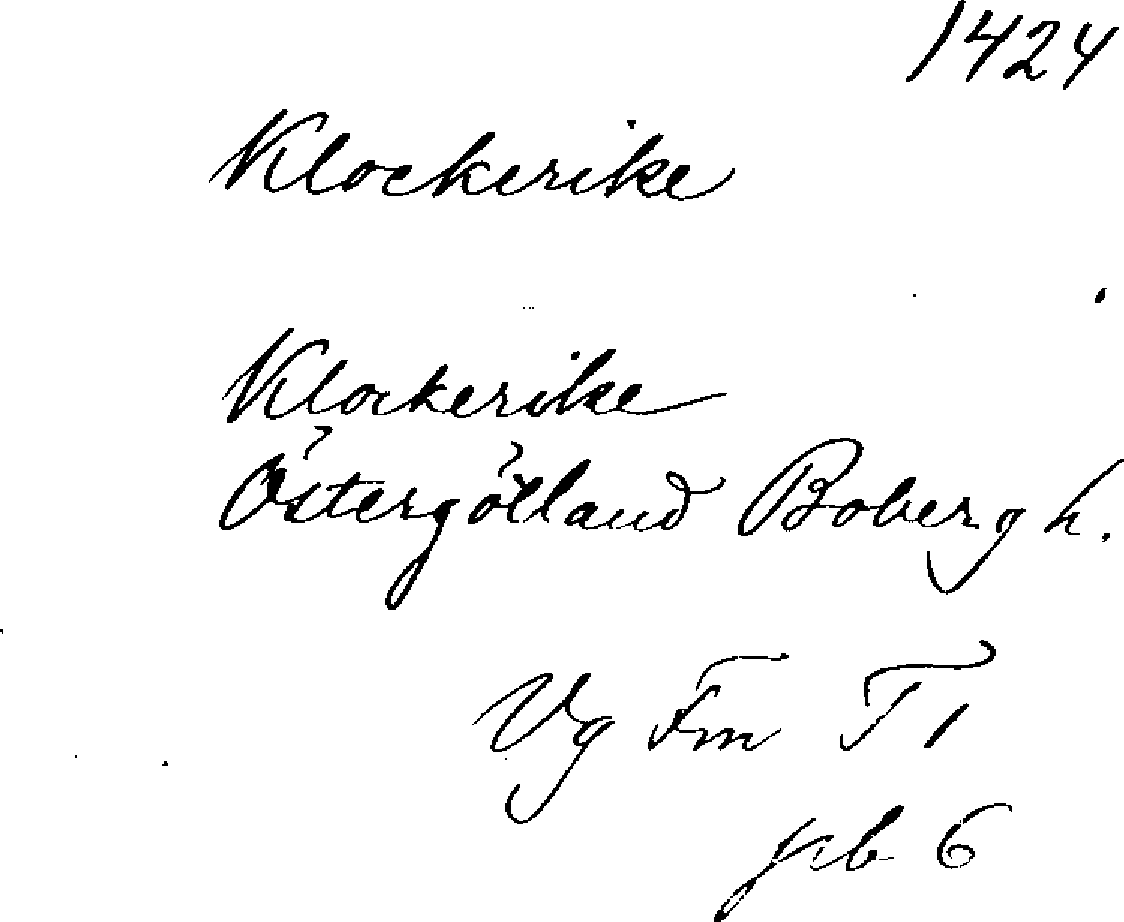 1424
Klockerike
Klockerike
Östergötland Boberg h.
Vg Fm T 1
6